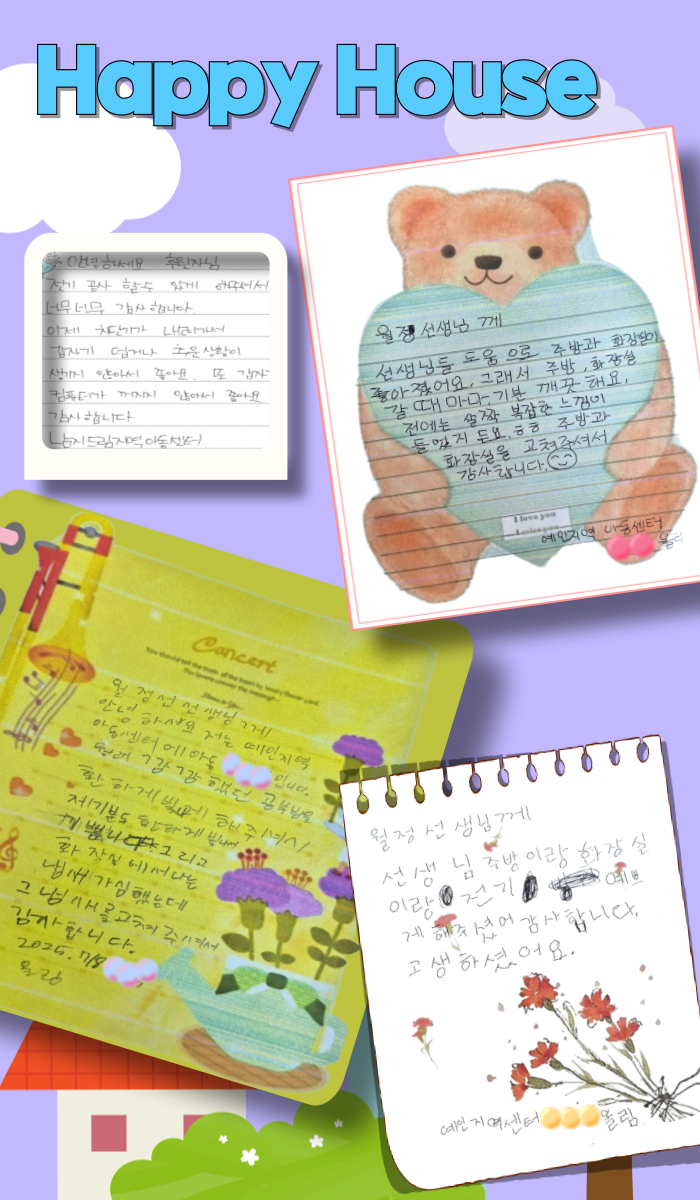 Happy House
안녕하세요 후원자님
전기 공사 할수 있게 해주셔서
너무너무 감사합니다
이제 차단기가 내려가서
갑자기 덥거나 추운상황이
생기지 않아서 좋아요. 또 갑자기
컴퓨터가 꺼지지 않아서 좋아요
감사합니다
남지드림지역아동센터
월정 선생님 께
선생님들 도움 으로 주방과 화장실이
좋아졌어요. 그래서 주방, 화장실
갈 때 마다 기분 깨끗해요,
전에는 살짝 복잡한 느낌이
들었지 든요.ㅎㅎ 주방과
화장실을 고쳐주셔서
감사합니다.
I love you
예인지역 아동센터
올림
Concert
You should tell the truth of the heart by lovely flower card.
월정선 선생님께
안녕하세요 저는 예인지역
아동센터에 아동 입니다
원래 깜깜했던 공부방을
환하게 해주시
화장실에서 나는
냄새 가 심했는데
그 냄새를 고쳐주셔서
감사합니다.
2025. 7/8
올림
월정선생님께
선생님 주방이랑 화장실
이랑 전기 예쁘
게 해주셨어 감사합니다.
고생하셨어요.
예인지역센터 올림